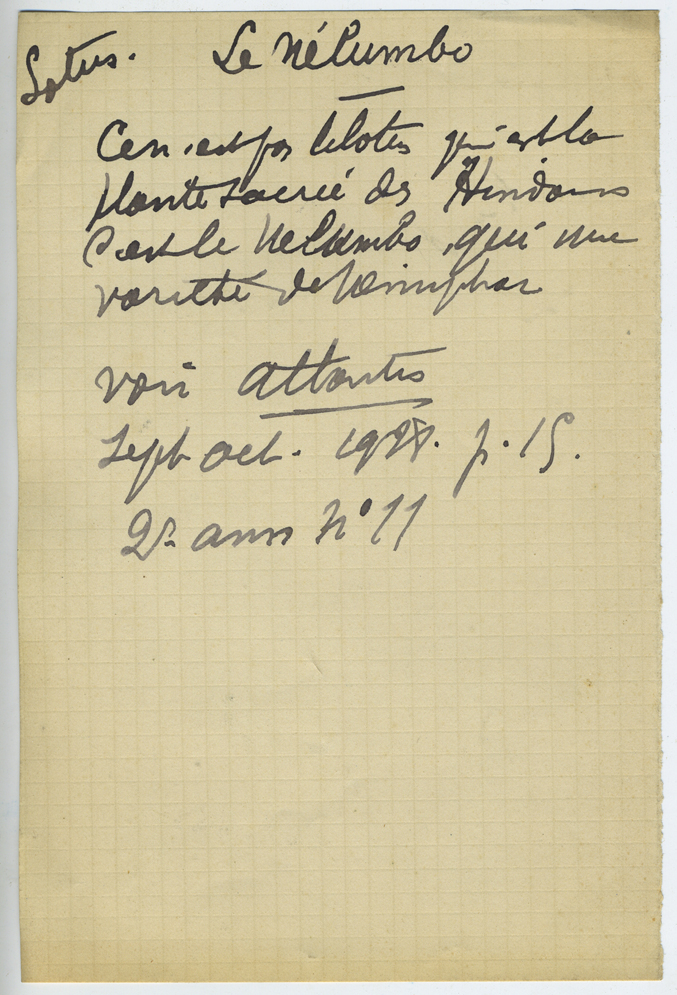 Lotus. Le Nélumbo
Ce n'est pas le lotus qui est la
plante sacrée des Hindous
C'est le Nelumbo, qui une
varieté de Nénuphar
voir Atlantis
Sept oct. 1928. p. 15.
2e ann N° 11